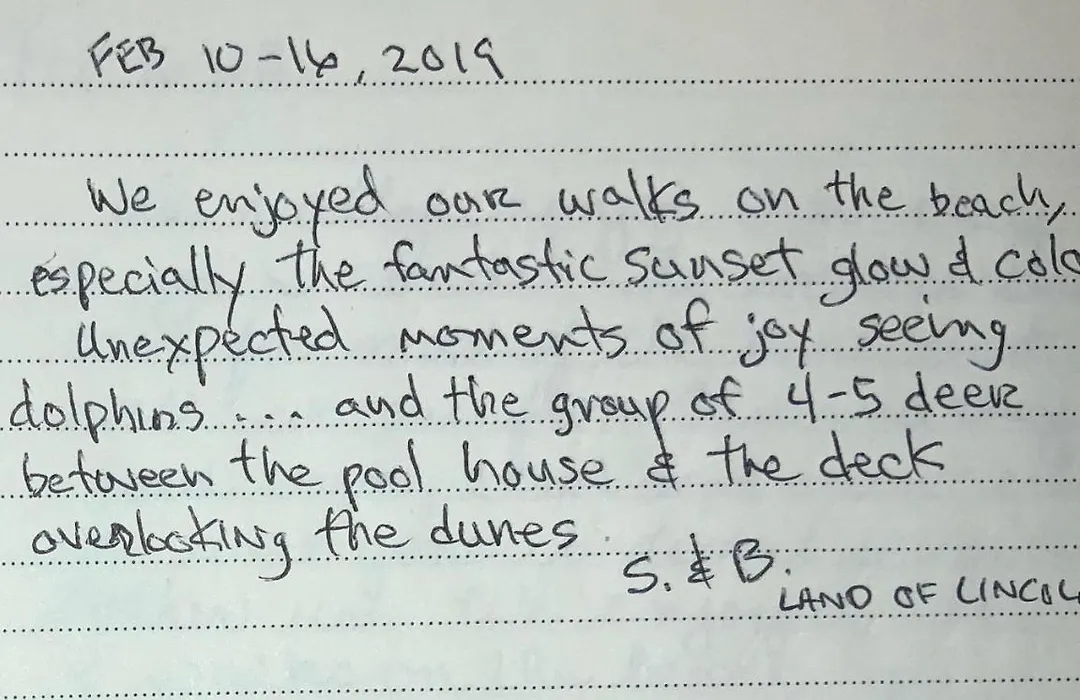 FEB 10-16, 2019
We enjoyed our walks on the beach,
especially the fantastic sunset glow & colo
Unexpected moments of joy seeing
dolphins .... and the group of 4-5 deer
between the pool house & the deck
overlooking the dunes.
S. & B.
LAND OF LINCOL